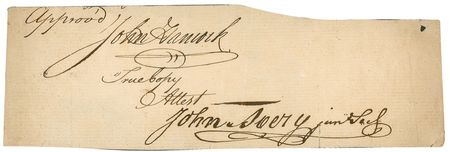 Approv'd
John Hancock
True Copy
Attest
John Avery junr Secy